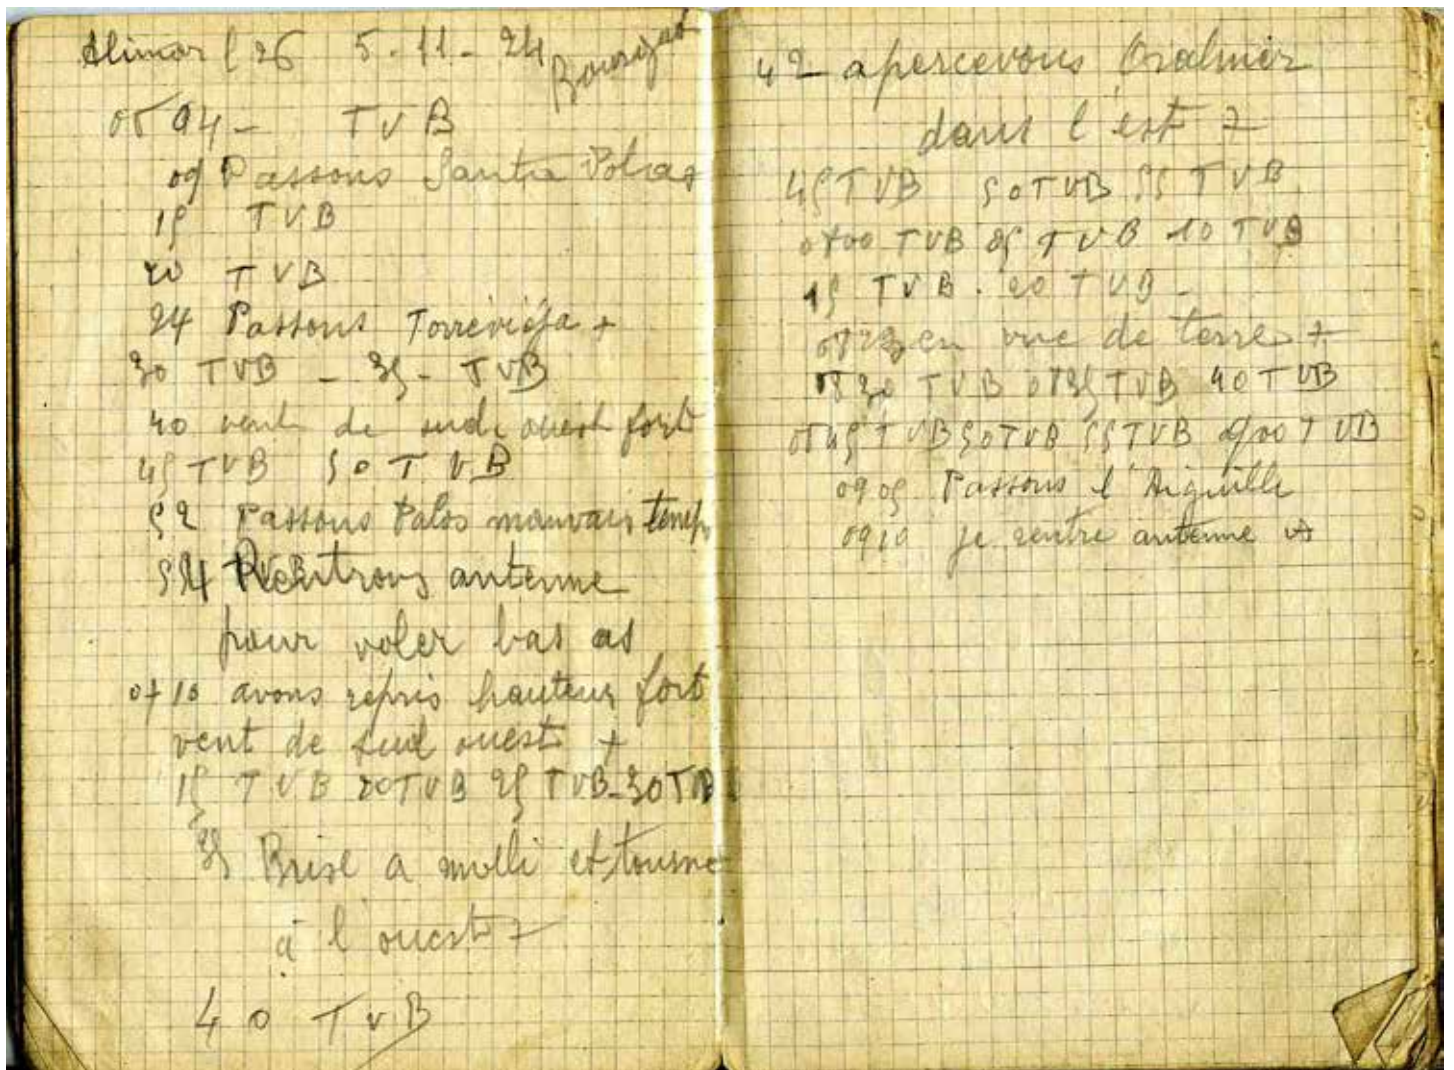 Alimar l 26 5-11-24
0504- TVB
09 Passons Santa Pola +
15 TVB
20 TVB
24 Passons Torrevieja +
30 TVB - 35 - TVB
40 vent de sud ouest fort
45 TVB 50 TVB
52 Passons Palos mauvais temps
54 Rentrons antenne
pour voler bas as
0710 avons repris hauteur fort
vent de sud ouest +
15 TVB 20 TVB 25 TVB - 30 TVB
35 Brise a molli et tourne
à l'ouest +
40 TVB
42 apercevons
dans l'est +
45 TVB 50 TVB 55 TVB
0800 TVB 05 TVB 10 TVB
15 TVB . 20 TVB -
en vue de terre +
0830 TVB 0835 TVB 40 TVB
0845 TVB 50 TVB 55 TVB 0900 TVB
0905 Passons l'Aiguille
0910 je rentre antenne